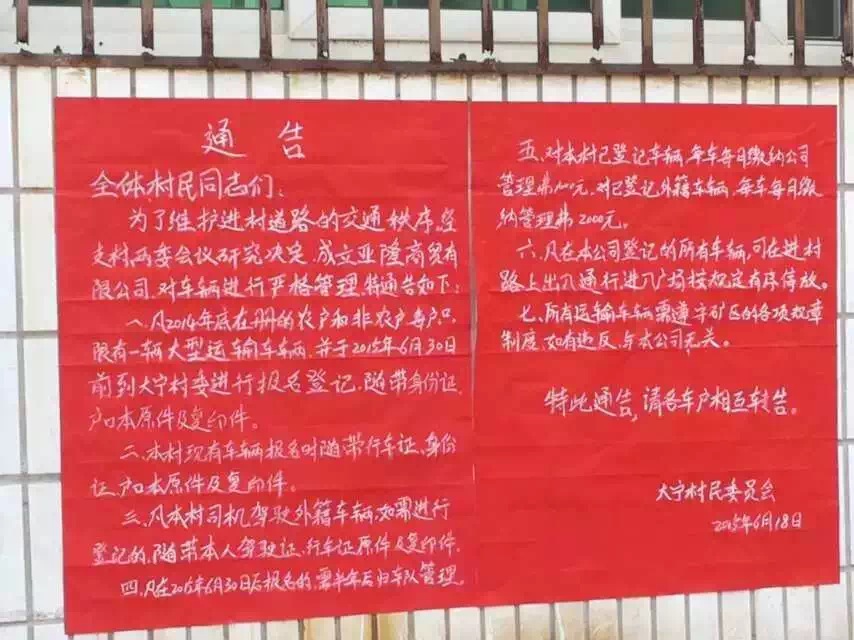 通 告
全体村民同志们：
为了维护进村道路的交通秩序，经
支村两委会议研究决定，成立亚隆商贸有
限公司，对车辆进行严格管理，特通告如下：
一、凡2014年底在册的农户和非农户每户只
限有一辆大型运输车车辆，并于2015年6月30日
前到大宁村委进行报名登记，随带身份证，
户口本原件及复印件。
二、本村现有车辆报名时随带行车证、身份
证、户口本原件及复印件。
三、凡本村司机驾驶外籍车辆，如需进行
登记的，随带本人驾驶证、行车证原件及复印件，
四、凡在2015年6月30日后报名的，需半年后归车队管理。
五、对本村已登记车辆，每车每月缴纳公司
管理费1000元，对已登记外籍车辆，每车每月缴
纳管理费2000元。
六、凡在本公司登记的所有车辆，可在进村
路上出入通行，进入广场按规定有序停放。
七、所有运输车车辆需遵守矿区的各项规章
制度，如有违反，与本公司无关。
特此通告，请各车户相互转告。
大宁村民委员会
2015年6月18日